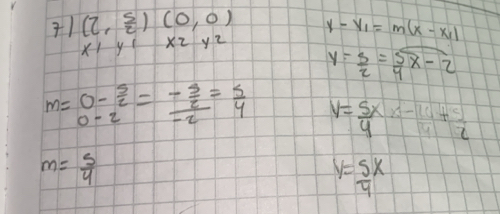 7) (2, 5/2) (0, 0)
x1 y1 x2 y2
m = 0 - 5/2 / 0 - 2 = - 5/2 / -2 = 5/4
m = 5/4
y - y1 = m(x - x1)
y = 5/2 = 5/4 x - 2
y = 5x/4
y = 5x/4